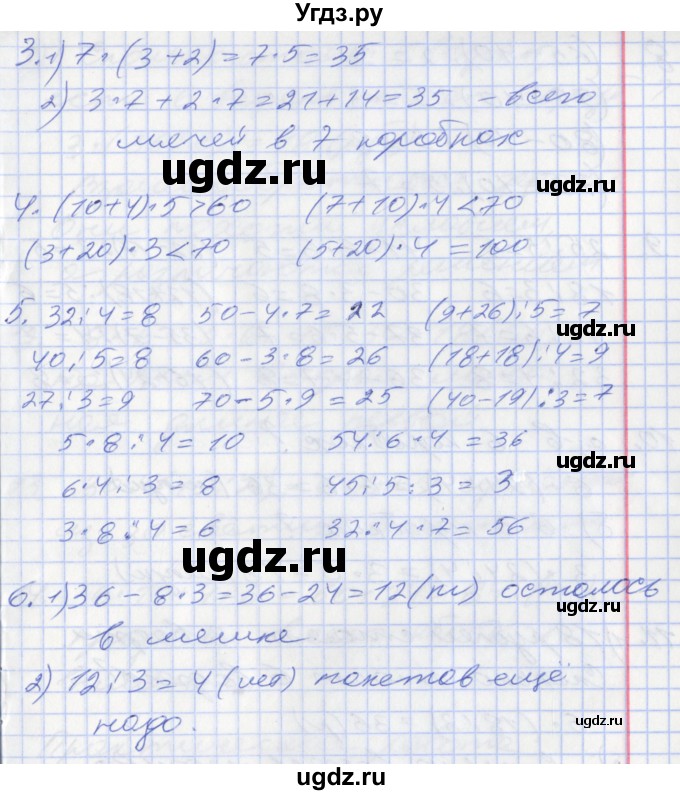 Угдз.ру
3. 1) 7 · (3 + 2) = 7 · 5 = 35
2) 3 · 7 + 2 · 7 = 21 + 14 = 35 – всего
мячей в 7 коробках
ugdz.ru
ugdz.ru
4. (10+4) · 5 > 60 (7+10) · 4 < 70
(3+20) · 3 < 70 (5+20) · 4 = 100
ugdz.ru
5. 32 : 4 = 8 50 – 4 · 7 = 22 (9+26) : 5 = 7
ugdz.ru
40 : 5 = 8 60 – 3 · 8 = 26 (18+18) : 4 = 9
27 : 3 = 9 70 – 5 · 9 = 25 (40–19) : 3 = 7
5 · 8 : 4 = 10 54 : 6 · 4 = 36
ugdz.ru
6 · 4 : 3 = 8 45 : 5 : 3 = 3
3 · 8 : 4 = 6 32 : 4 · 7 = 56
ugdz.ru
6. 1) 36 – 8 · 3 = 36 – 24 = 12 (кг) осталось
ugdz.ru
в мешке.
2) 12 : 3 = 4 (пет) пакетов ещё
надо.
ugdz.ru
ugdz.ru